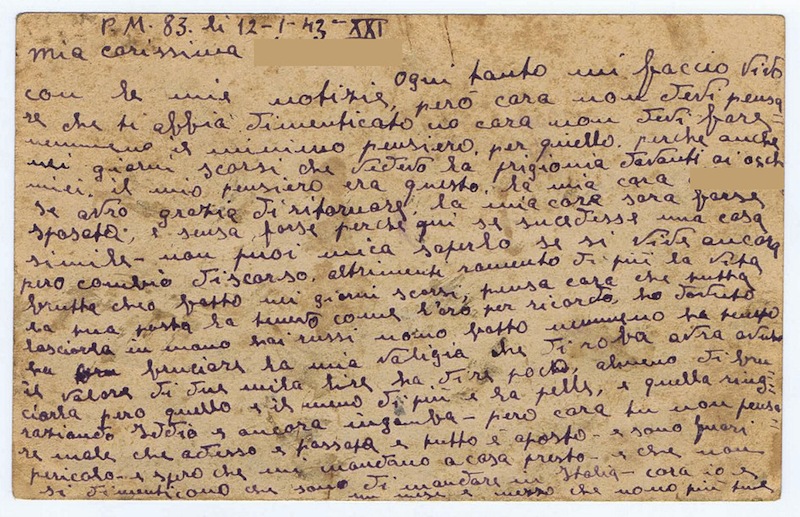 P. M. 83. li 12-1-43 - XXI
Mia carissima
Ogni tanto mi faccio vivo
con le mie notizie, però cara non devi pensa
re che ti abbia dimenticato no cara non devi fare
nemmeno il minimo pensiero per quello. perche anche
nei giorni scorsi che vedevo la prigionia davanti ai och
miei, il mio pensiero era questo, la mia cara
se avro grazia di ritornare, la mia cara sara forse
sposata, e sensa forse perche qui se sucedesse una casa
simile - non puoi mica saperlo se si vive ancora
pero cambio discorso. altrimenti ramento di più la vita
brutta cheo fatto nei giorni scorsi, pensa cara che tutta
la tua posta la tenevo come l'oro per ricordo, ho dovuto
lasciarla in mano hai russi nono fatto nemmeno ha tempo
ha bruciare la mia valigia che di roba avra avuto
il valore di due mila lire ha dire poco, almeno di bru
ciarla pero quello e il meno di più e la pelle, e quella ring-
raziando Iddio e ancora ingamba - pero cara tu non pensa-
re male che adesso e passata e tutto è aposto - e sono fuori
pericolo - e spero che mi mandano a casa presto - e che non
si dimenticono che sono di mandare in Italia - cara io e
un mese e mezzo che nono più tue